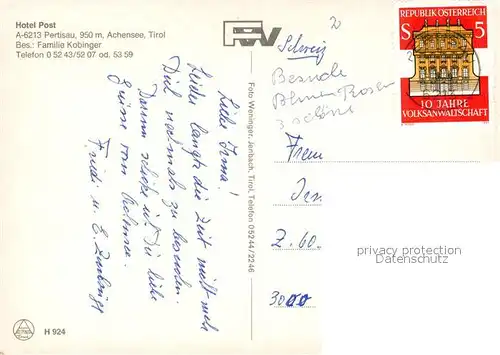 Hotel Post
A-6213 Pertisau, 950 m, Achensee, Tirol
Bes.: Familie Kobinger
Telefon 0 52 43/52 07 od. 53 59
Liebe Irma!
Leider langte die Zeit nicht mehr
Dich nochmals zu besuchen.
Darum schicke ich Dir liebe
Grüsse vom Achensee.
Friedi u. E.
Foto Weninger, Jenbach, Tirol, Telefon 05244/2246
2
Schweiz
Besuche
Blumen Rosen
3 schöne
REPUBLIK ÖSTERREICH
S 5
10 JAHRE
VOLKSANWALTSCHAFT
Frau
3000
privacy protection
Datenschutz
H 924